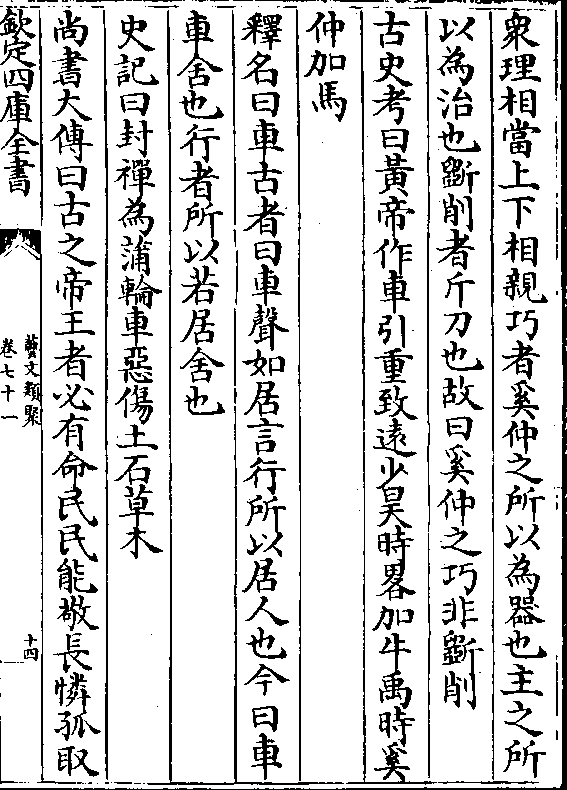 衆理相當上下相親巧者奚仲之所以為器也主之所
以為治也斵削者斤刀也故曰奚仲之巧非斵削
古史考曰黃帝作車引重致遠少昊時畧加牛禹時奚
仲加馬
釋名曰車古者曰車聲如居言行所以居人也今曰車
車舍也行者所以若居舍也
史記曰封禪為蒲輪車惡傷土石草木
尚書大傳曰古之帝王者必有命民民能敬長憐孤取
欽定四庫全書
藝文類聚
卷七十一
十四